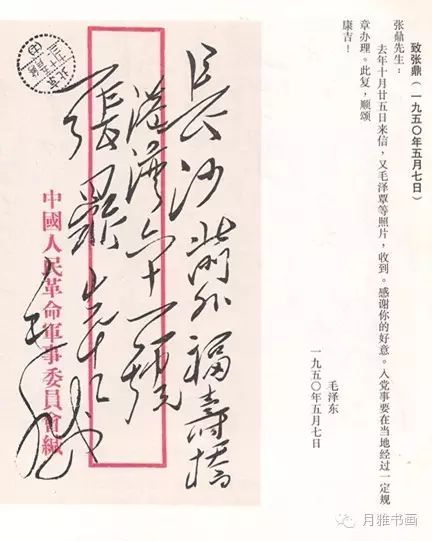 致张鼎（一九五〇年五月七日）
张鼎先生：
去年十月廿五日来信，又毛泽覃等照片，收到。感谢你的好意。入党事要在当地经过一定规
章办理。此复，顺颂
康吉！
毛泽东
一九五〇年五月七日
長沙 福壽橋
六十一號
張鼎先生
中國人民革命軍事委員會緘
月雅书画